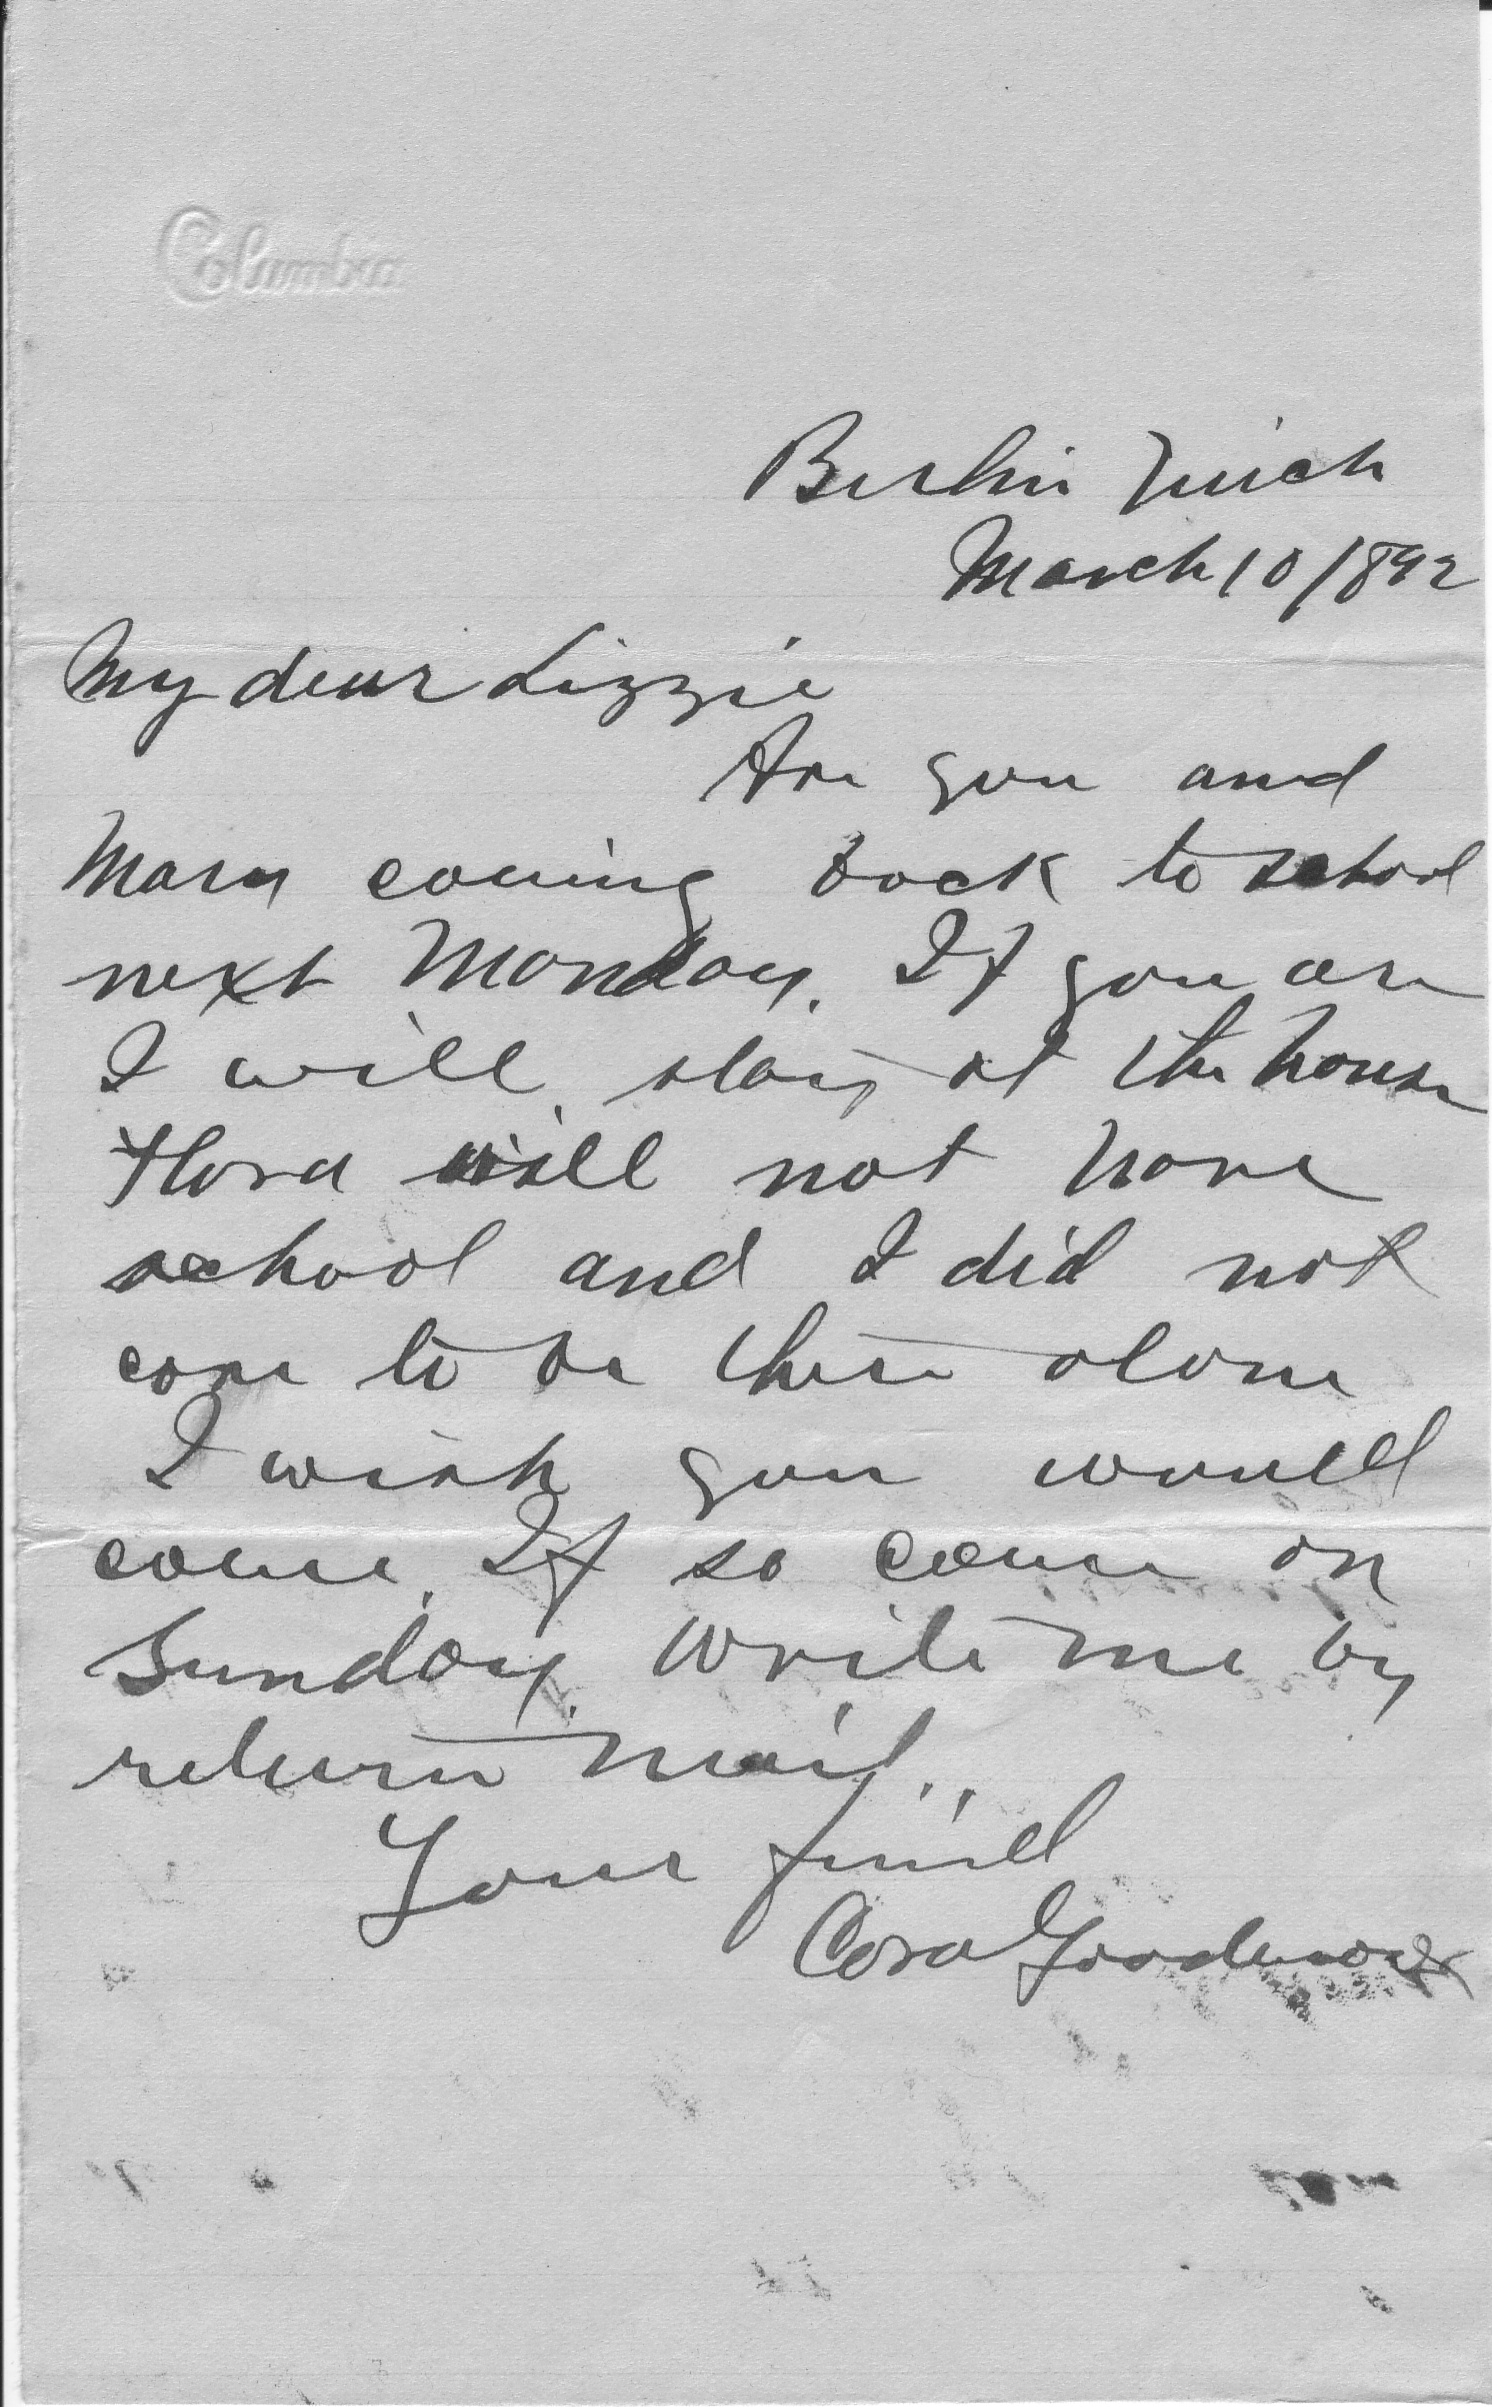 Columbia
Berlin Mich
March 10/892
My dear Lizzie
Are you and
Mary coming back to school
next Monday. If you are
I will stay at the house
Flora will not have
school and I did not
care to be there alone
I wish you would
come. If so come on
Sunday. Write me by
return mail.
Your friend
Cora Goodenow